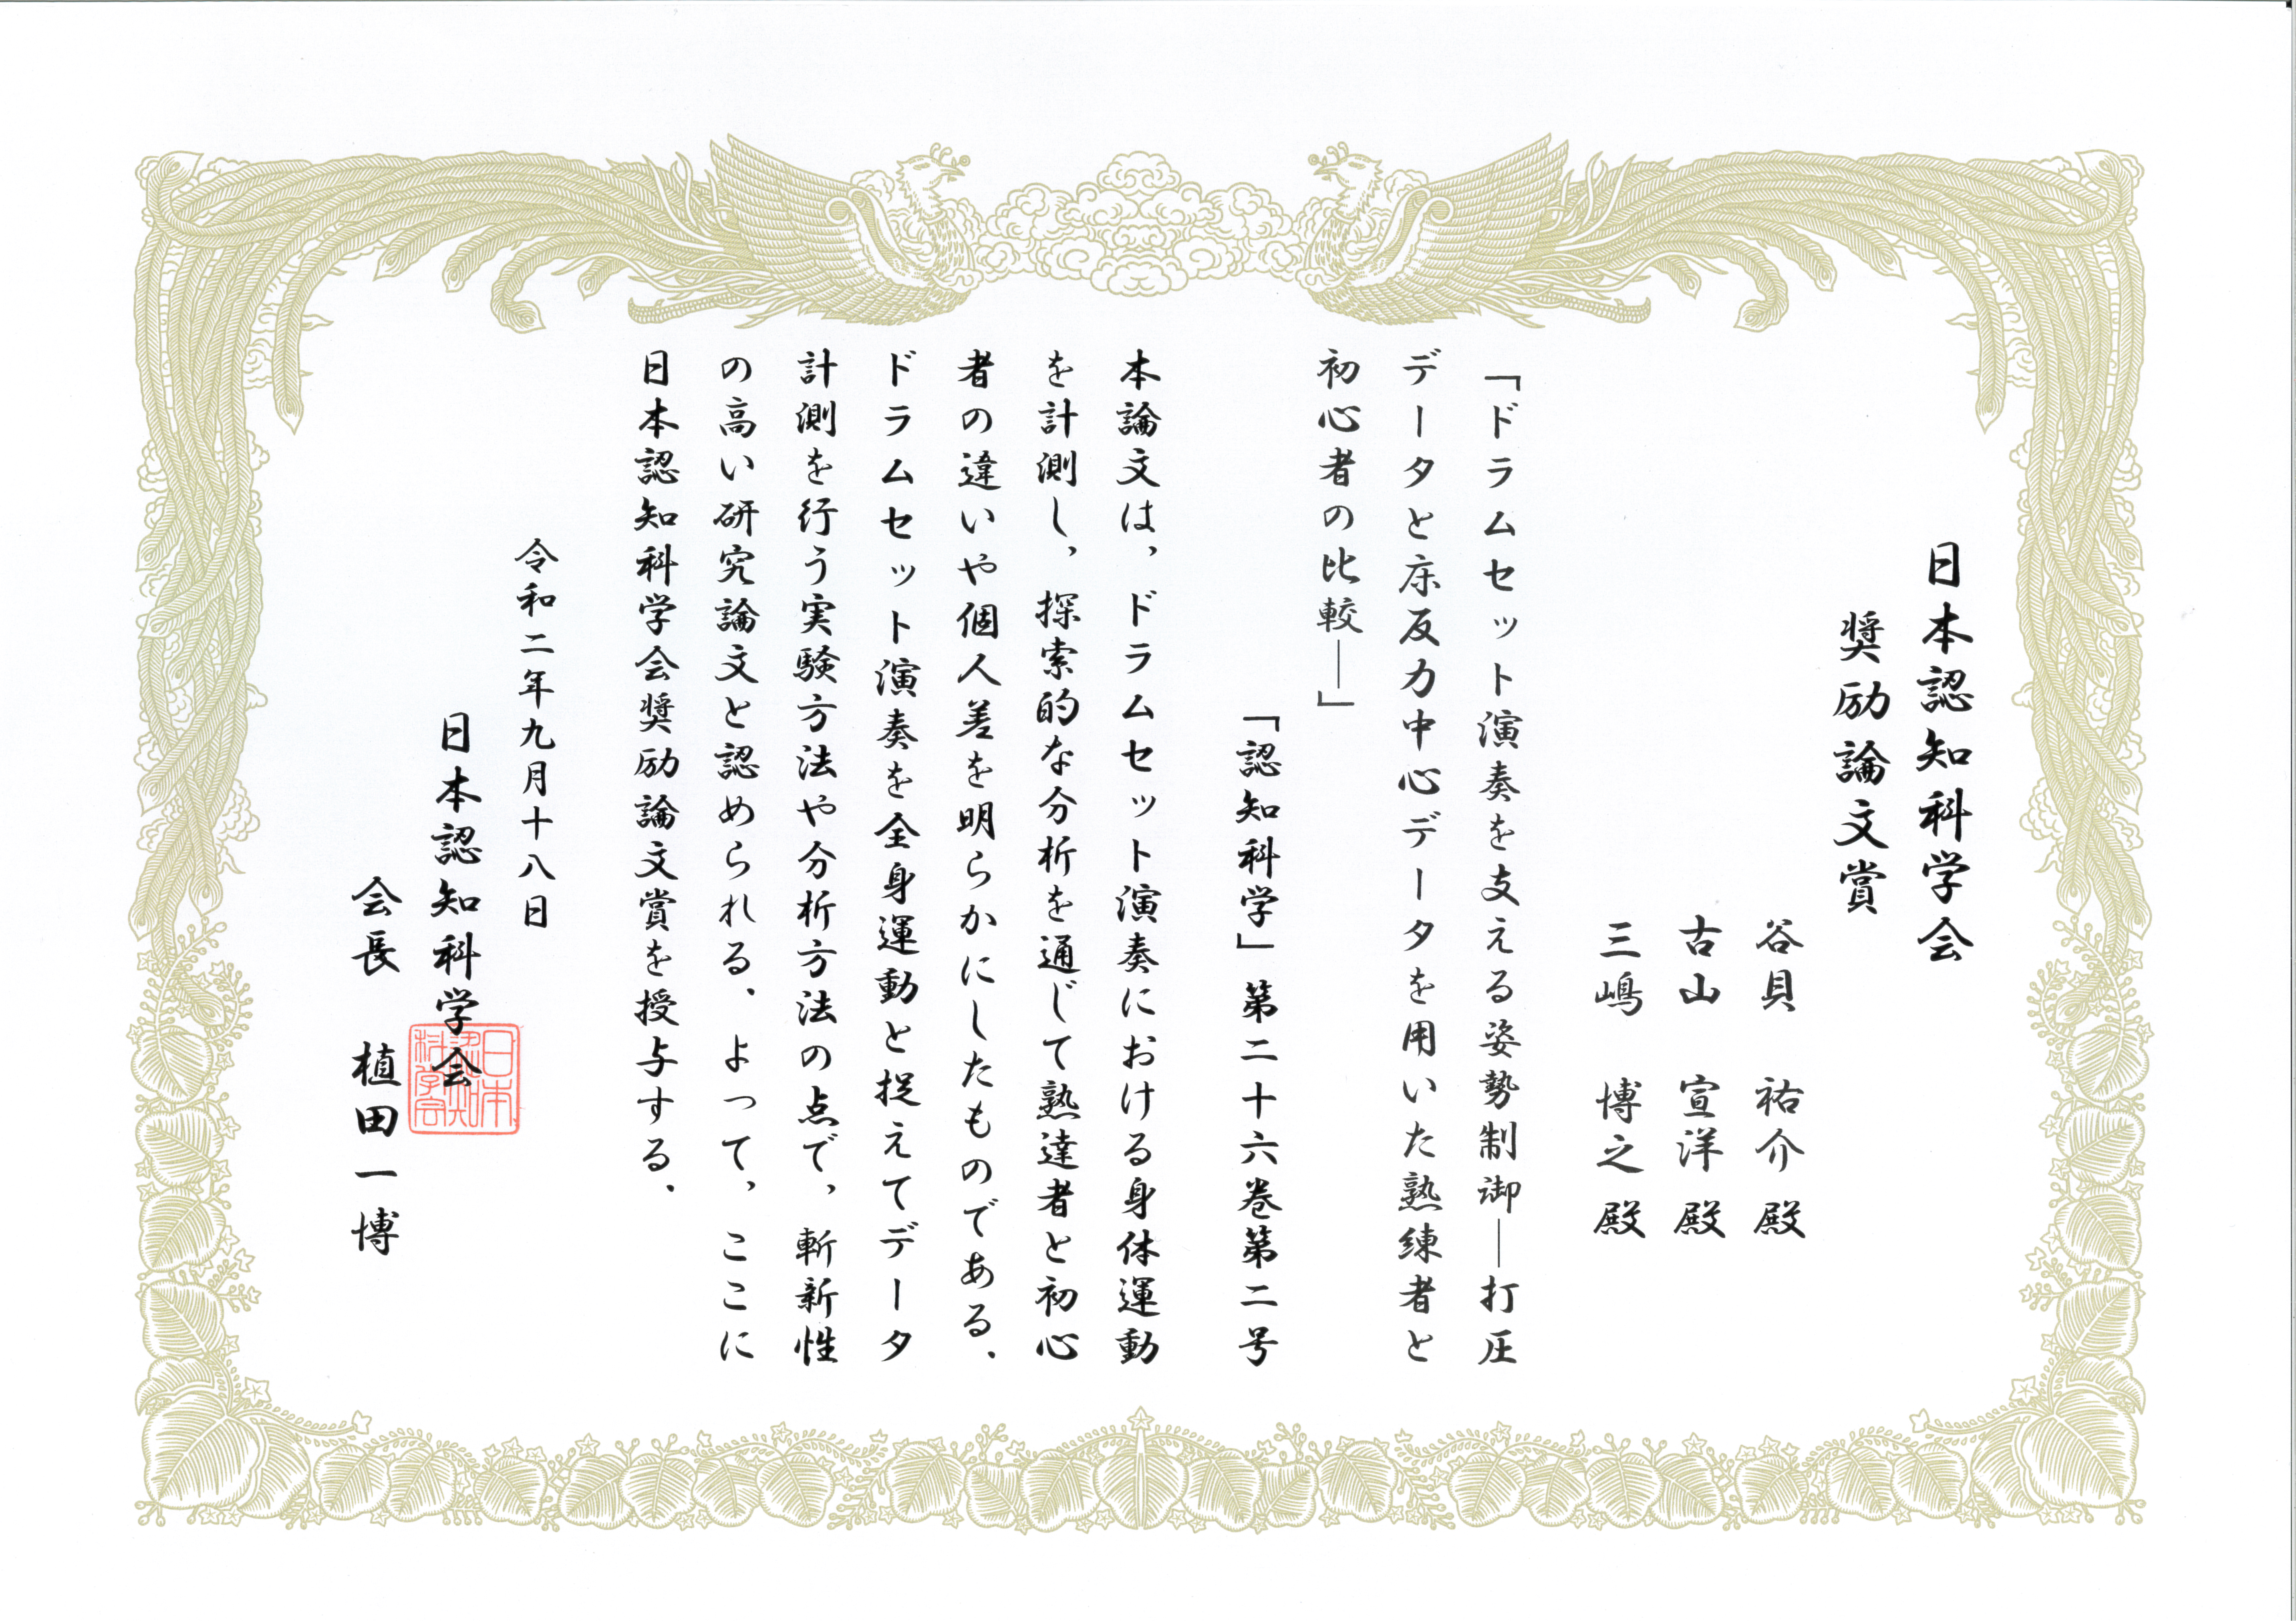 日本認知科学会
奨励論文賞
谷貝 祐介 殿
古山 宣洋 殿
三嶋 博之 殿
「ドラムセット演奏を支える姿勢制御―打圧
データと床反力中心データを用いた熟練者と
初心者の比較―」
「認知科学」第二十六巻第二号
本論文は，ドラムセット演奏における身体運動
を計測し，探索的な分析を通じて熟達者と初心
者の違いや個人差を明らかにしたものである．
ドラムセット演奏を全身運動と捉えてデータ
計測を行う実験方法や分析方法の点で，斬新性
の高い研究論文と認められる．よって，ここに
日本認知科学会奨励論文賞を授与する．
令和二年九月十八日
日本認知科学会
会長 植田一博
日本認知科学会